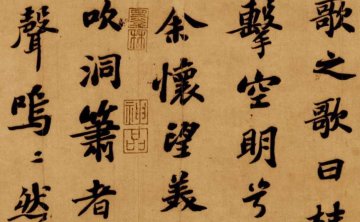 歌之歌曰桂
擊空明兮
余懷望美
吹洞簫者
聲嗚〻然